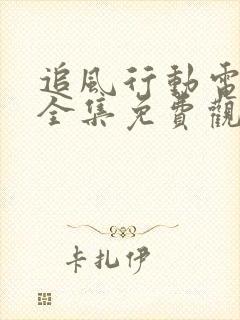 追風行動電
全集免費觀
卡扎伊